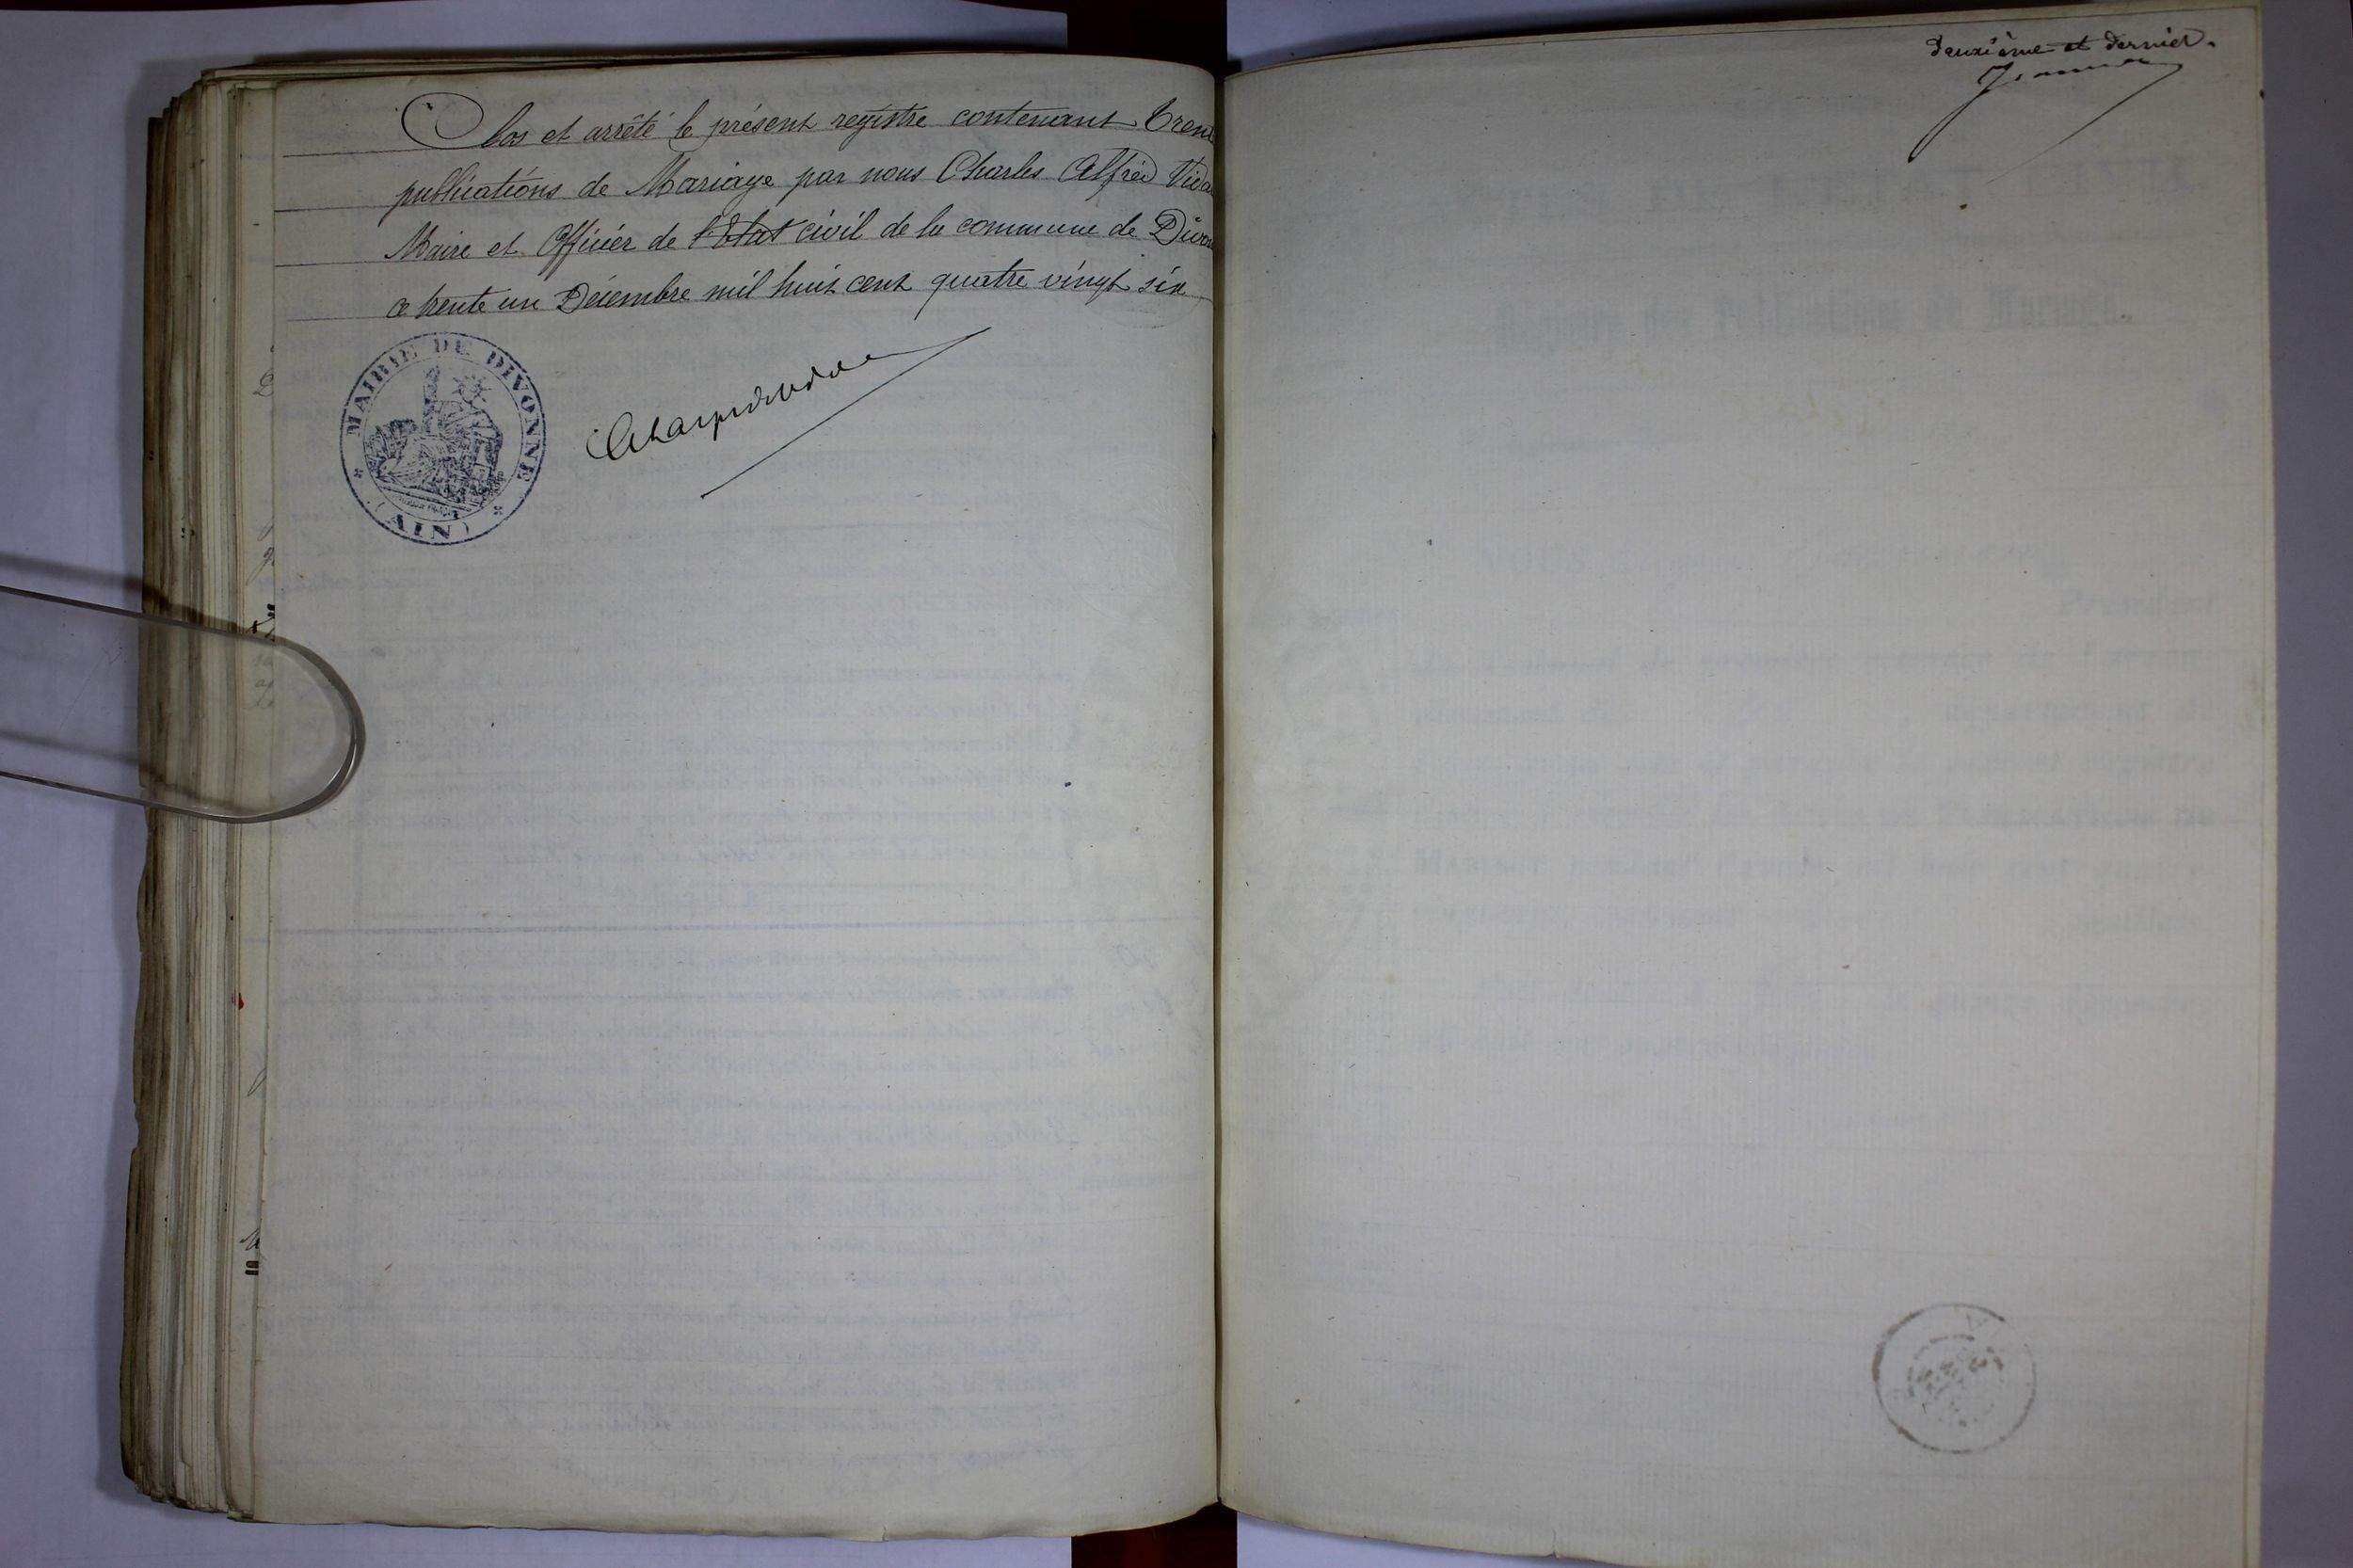 Clos et arrêté le présent registre contenant Tren
publications de Mariage par nous Charles Alfred Vida
Maire et Officier de l'Etat civil de la commune de Divon
ce trente un Décembre mil huit cent quatre vingt six
MAIRIE DE DIVONNE
(AIN)
deuxième et dernier.